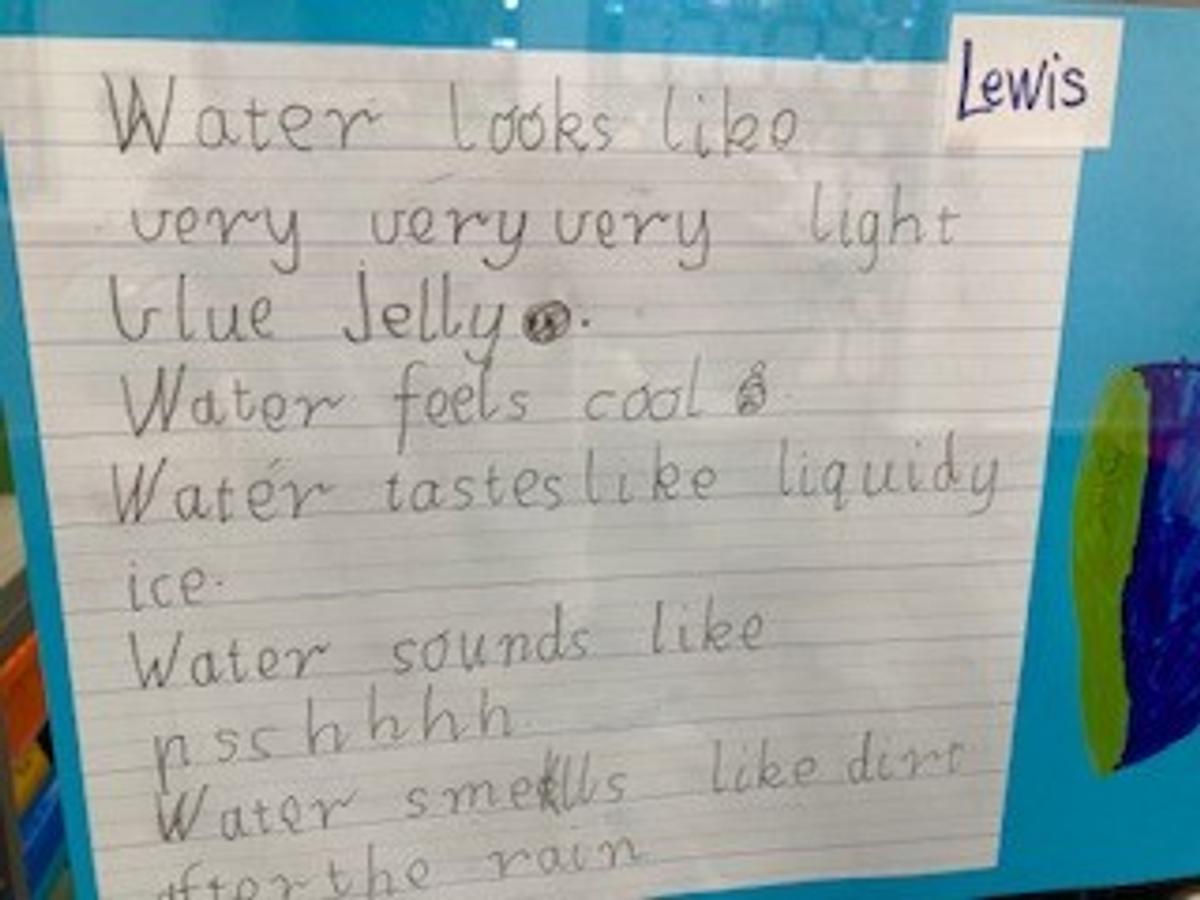 Lewis
Water looks like
very very very light
blue jelly.
Water feels cool
Water tastes like liquidy
ice.
Water sounds like
psshhhh
Water smells like dirt
after the rain